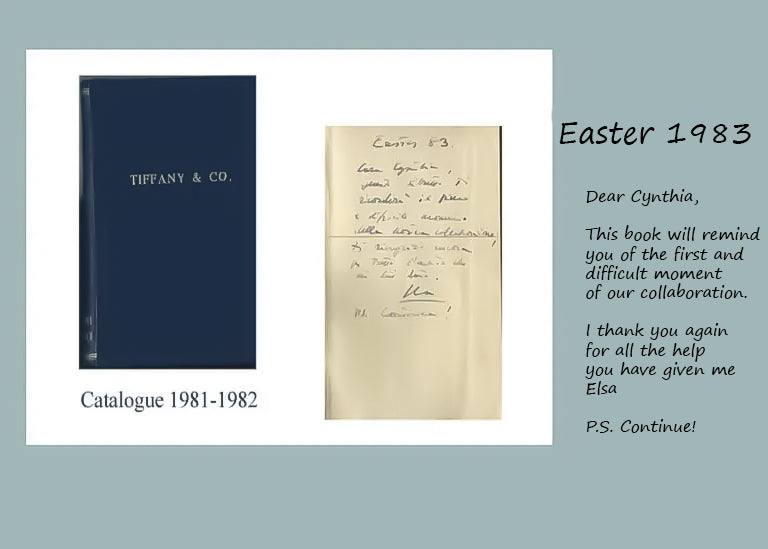 TIFFANY & CO.
Catalogue 1981-1982
Easter 83.
Cara Cynthia,
questo libro ti
ricorderà il primo
e difficile momento
della nostra collaborazione!
Ti ringrazio ancora
per tutto l'aiuto che
mi hai
Elsa
P.S.
Easter 1983
Dear Cynthia,
This book will remind
you of the first and
difficult moment
of our collaboration.
I thank you again
for all the help
you have given me
Elsa
P.S. Continue!